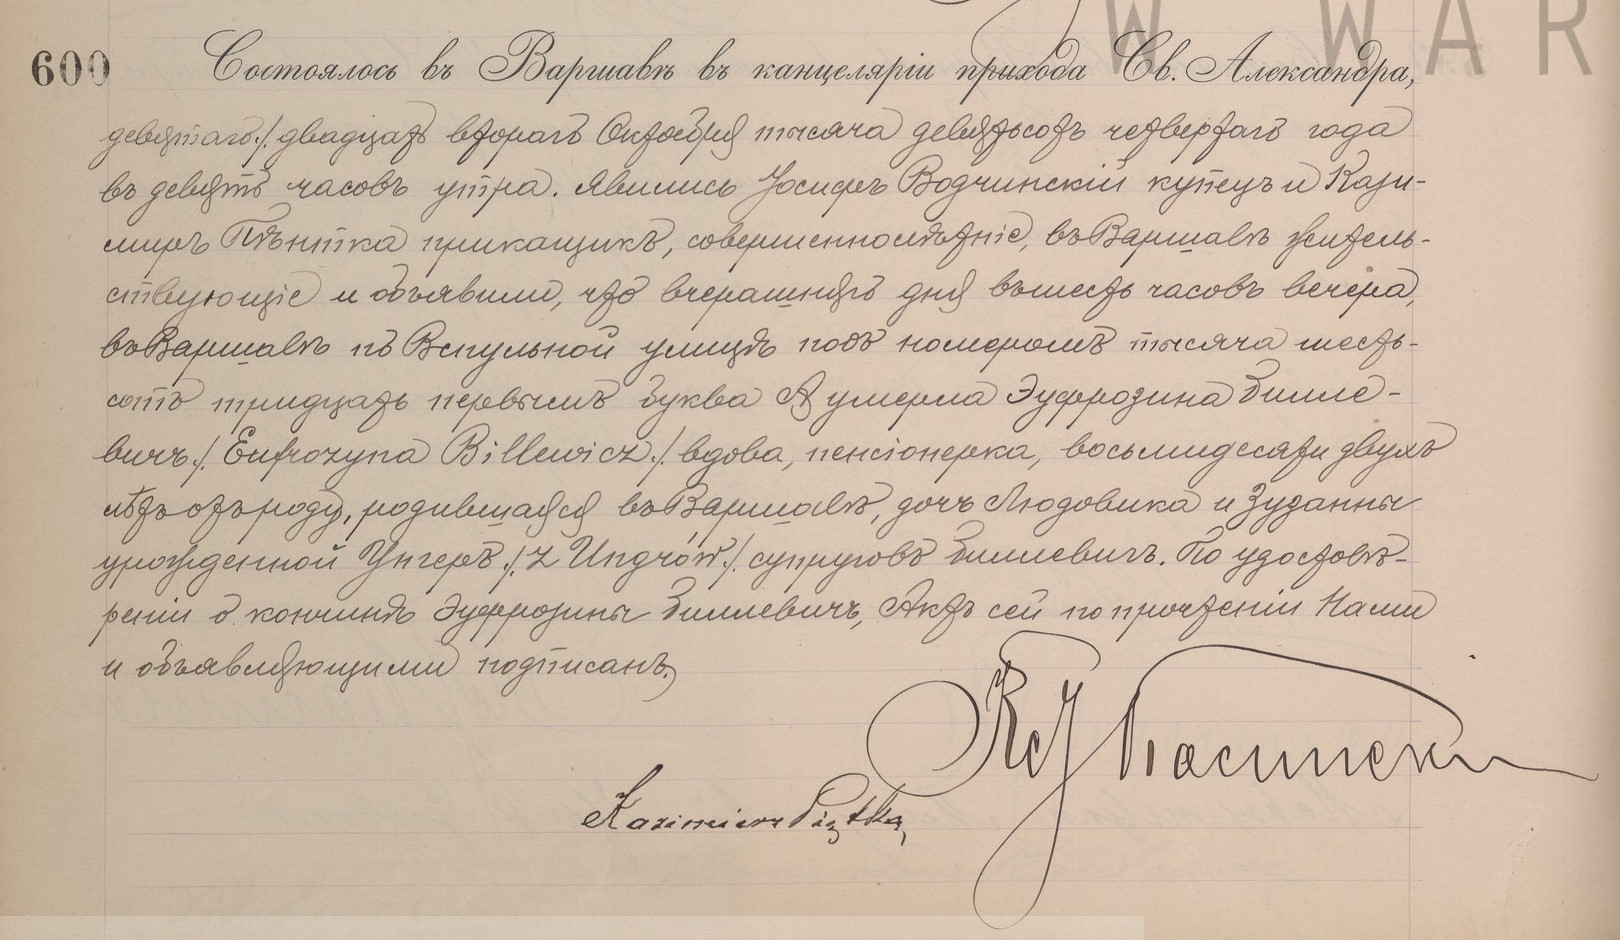 W WAR
600 Состоялось въ Варшавѣ въ канцеляріи прихода Св. Александра,
девятаго /. двадцать втораго Октября тысяча девятьсотъ четвертаго года
въ девять часовъ утра. Явились Іосифъ Водчинскій купецъ и Кази-
миръ Пѣнтка прикащикъ, совершеннолѣтніе, въ Варшавѣ житель-
ствующіе и объявили, что вчерашняго дня въ шесть часовъ вечера,
въ Варшавѣ по Вспульной улицѣ подъ номеромъ тысяча шесть-
сотъ тридцать первымъ буква А умерла Эуфрозина Билле-
вичъ /. Eufrozyna Billewicz /. вдова, пенсіонерка, восьмидесяти двухъ
лѣтъ отъ роду, родившаяся въ Варшавѣ, дочь Людовика и Зузанны
урожденной Унгеръ /. z Ungrów /. супруговъ Биллевичъ. По удостовѣ-
реніи о кончинѣ Эуфрозины Биллевичъ, Актъ сей по прочтеніи Нами
и объявляющими подписанъ.
Kazimierz Piątka